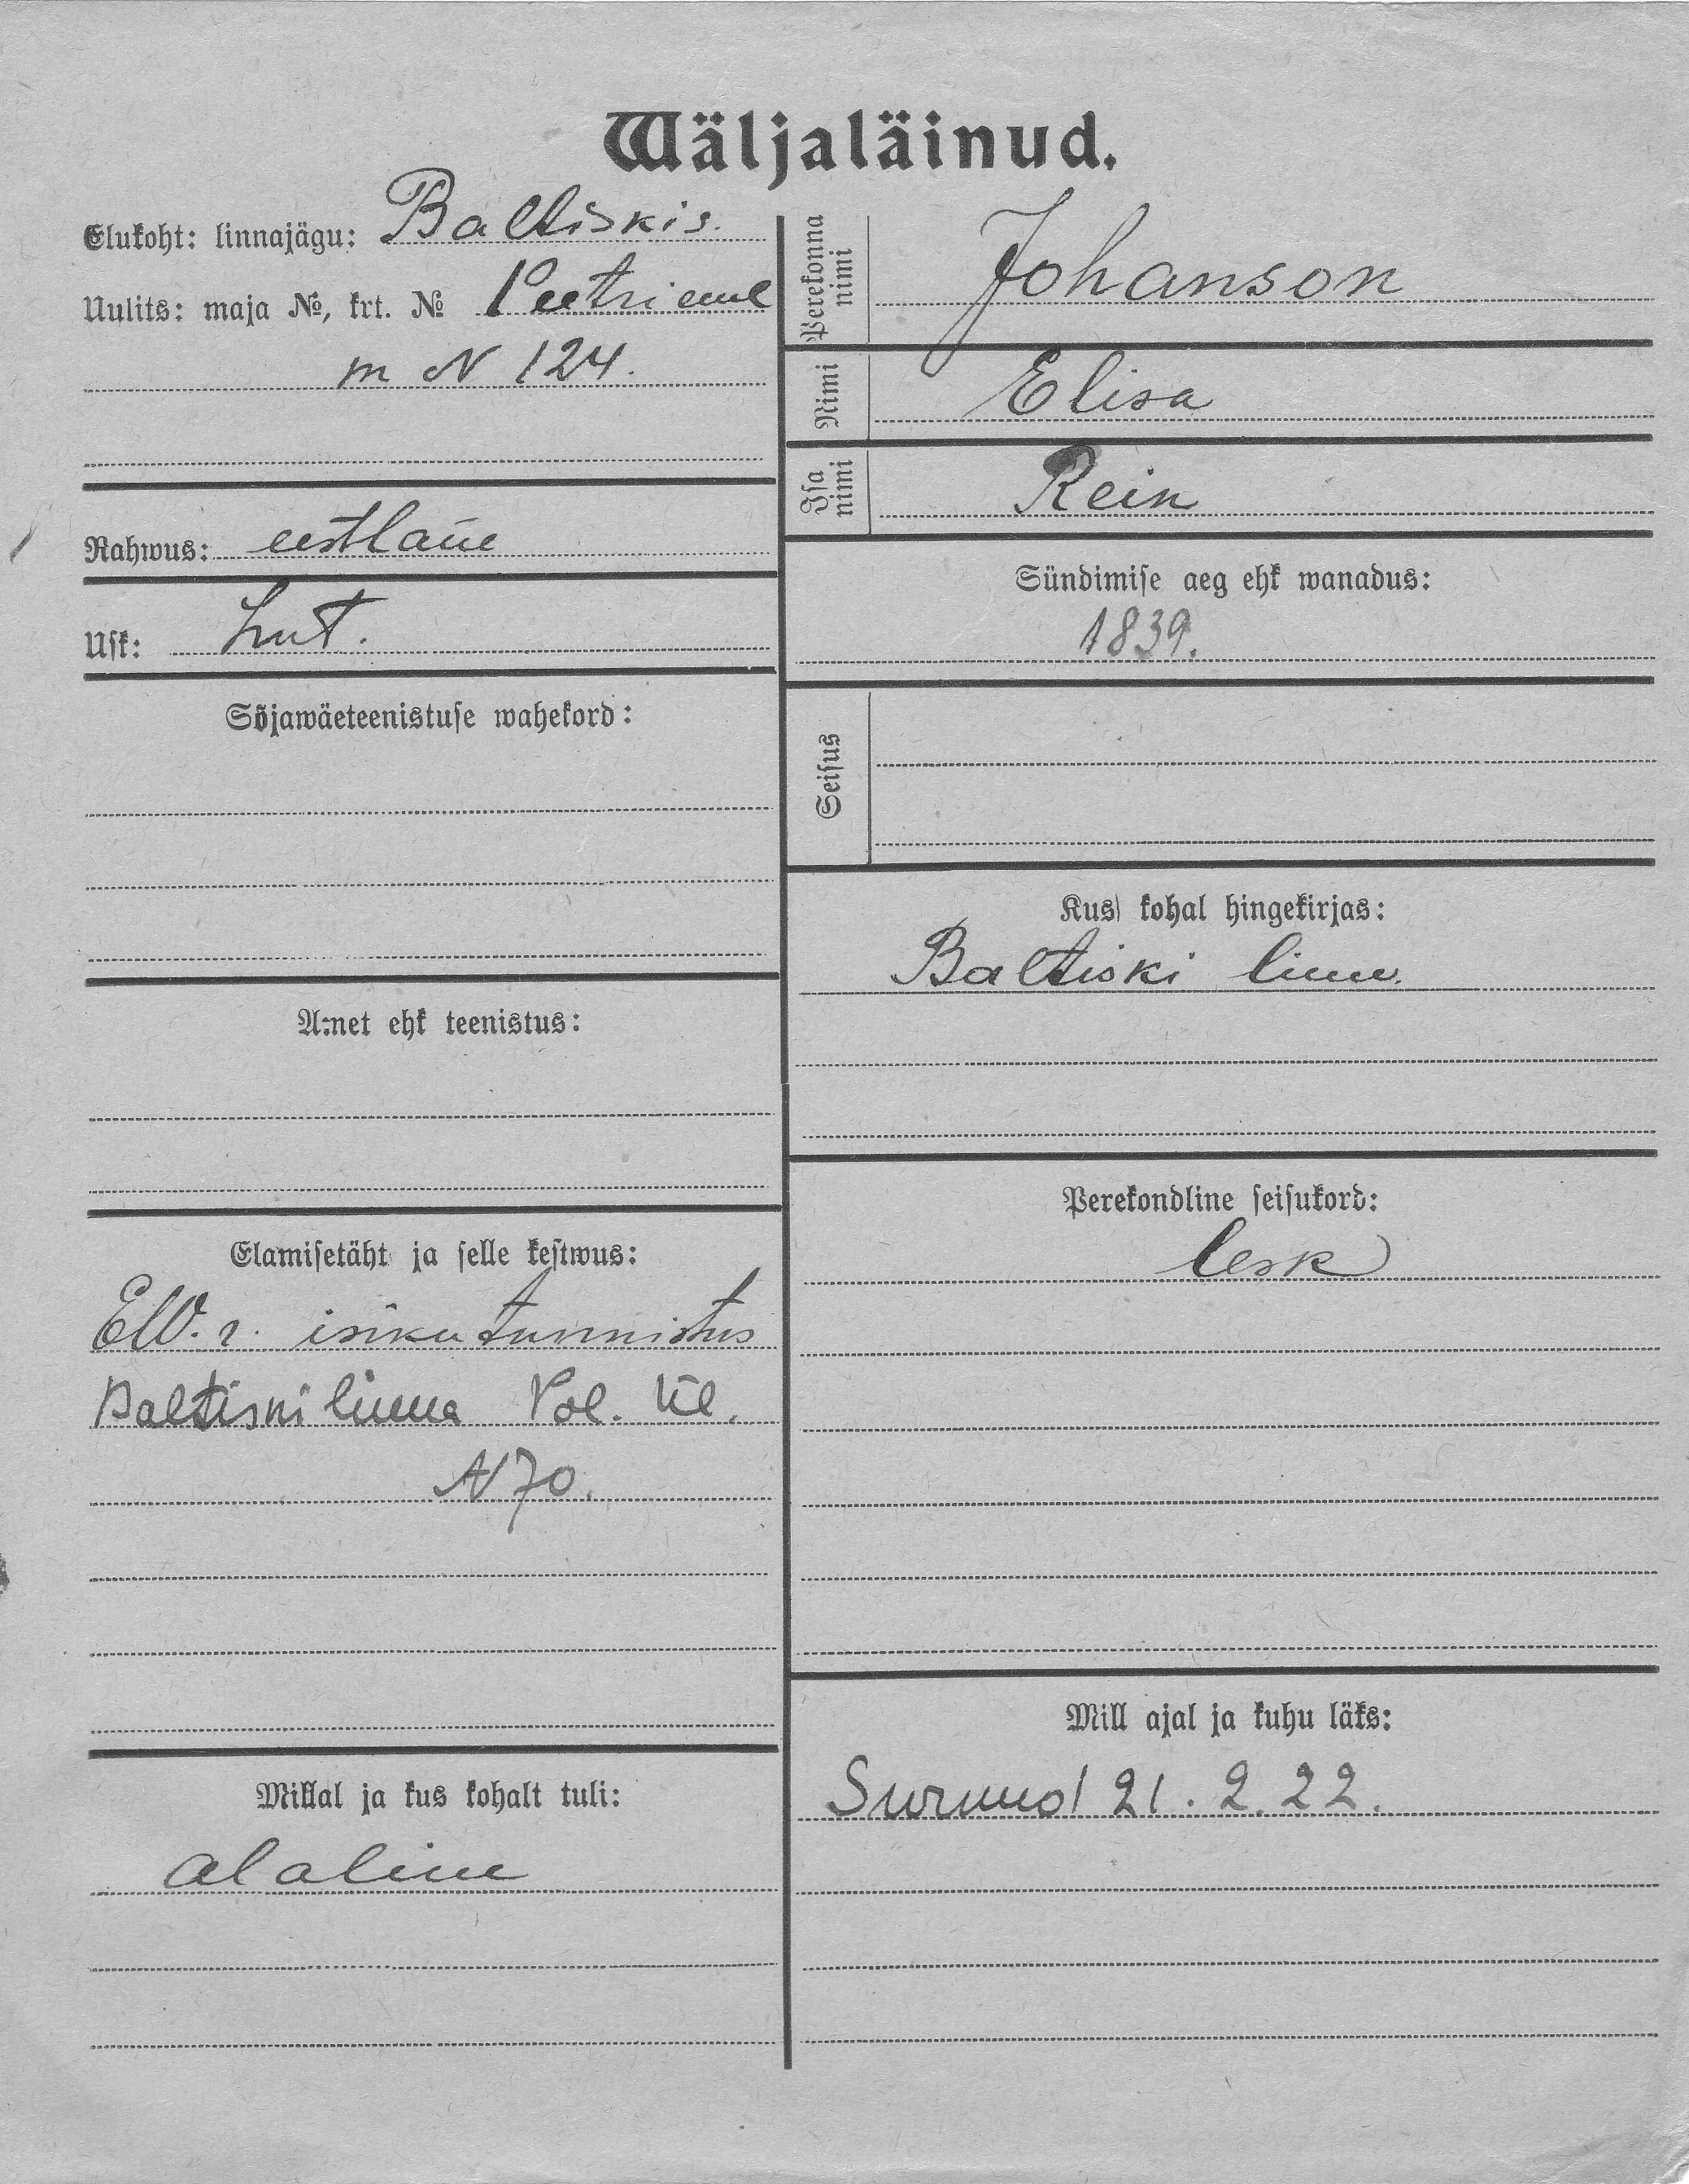 Wäljaläinud.
Elukoht: linnajägu: Baltiskis.
Uulits: maja №, krt. № Peetri
m N 124.
Rahwus: eestlane
Usk: Lut.
Sõjawäeteenistuse wahekord:
Amet ehk teenistus:
Elamisetäht ja selle kestwus:
EW. r. isikutunnistus
Baltiski linna Pol. Ül.
N 70.
Millal ja kus kohalt tuli:
alaline
Perekonna nimi Johanson
Nimi Elisa
Isa nimi Rein
Sündimise aeg ehk wanadus:
1839.
Seisus
Kus kohal hingekirjas:
Baltiski linn.
Perekondline seisukord:
lesk
Mill ajal ja kuhu läks:
Surnud 21. 2. 22.